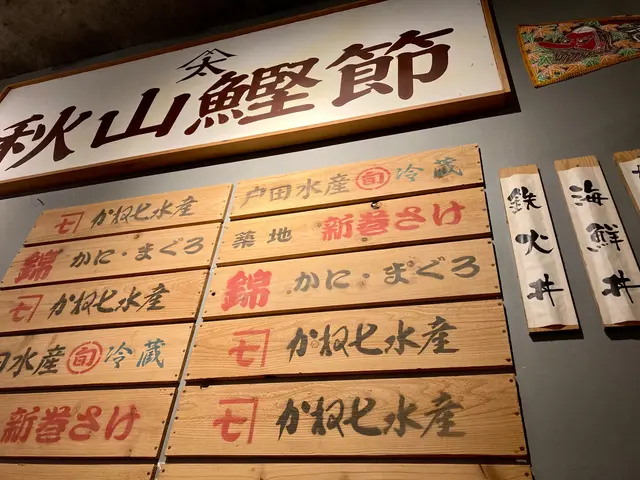 太
秋山鰹節
七 かね七水産
錦 かに・まぐろ
七 かね七水産
田水産 旬 冷蔵
新巻さけ
戸田水産 旬 冷蔵
築地 新巻さけ
錦 かに・まぐろ
七 かね七水産
七 かね七水産
鉄火丼
海鮮丼